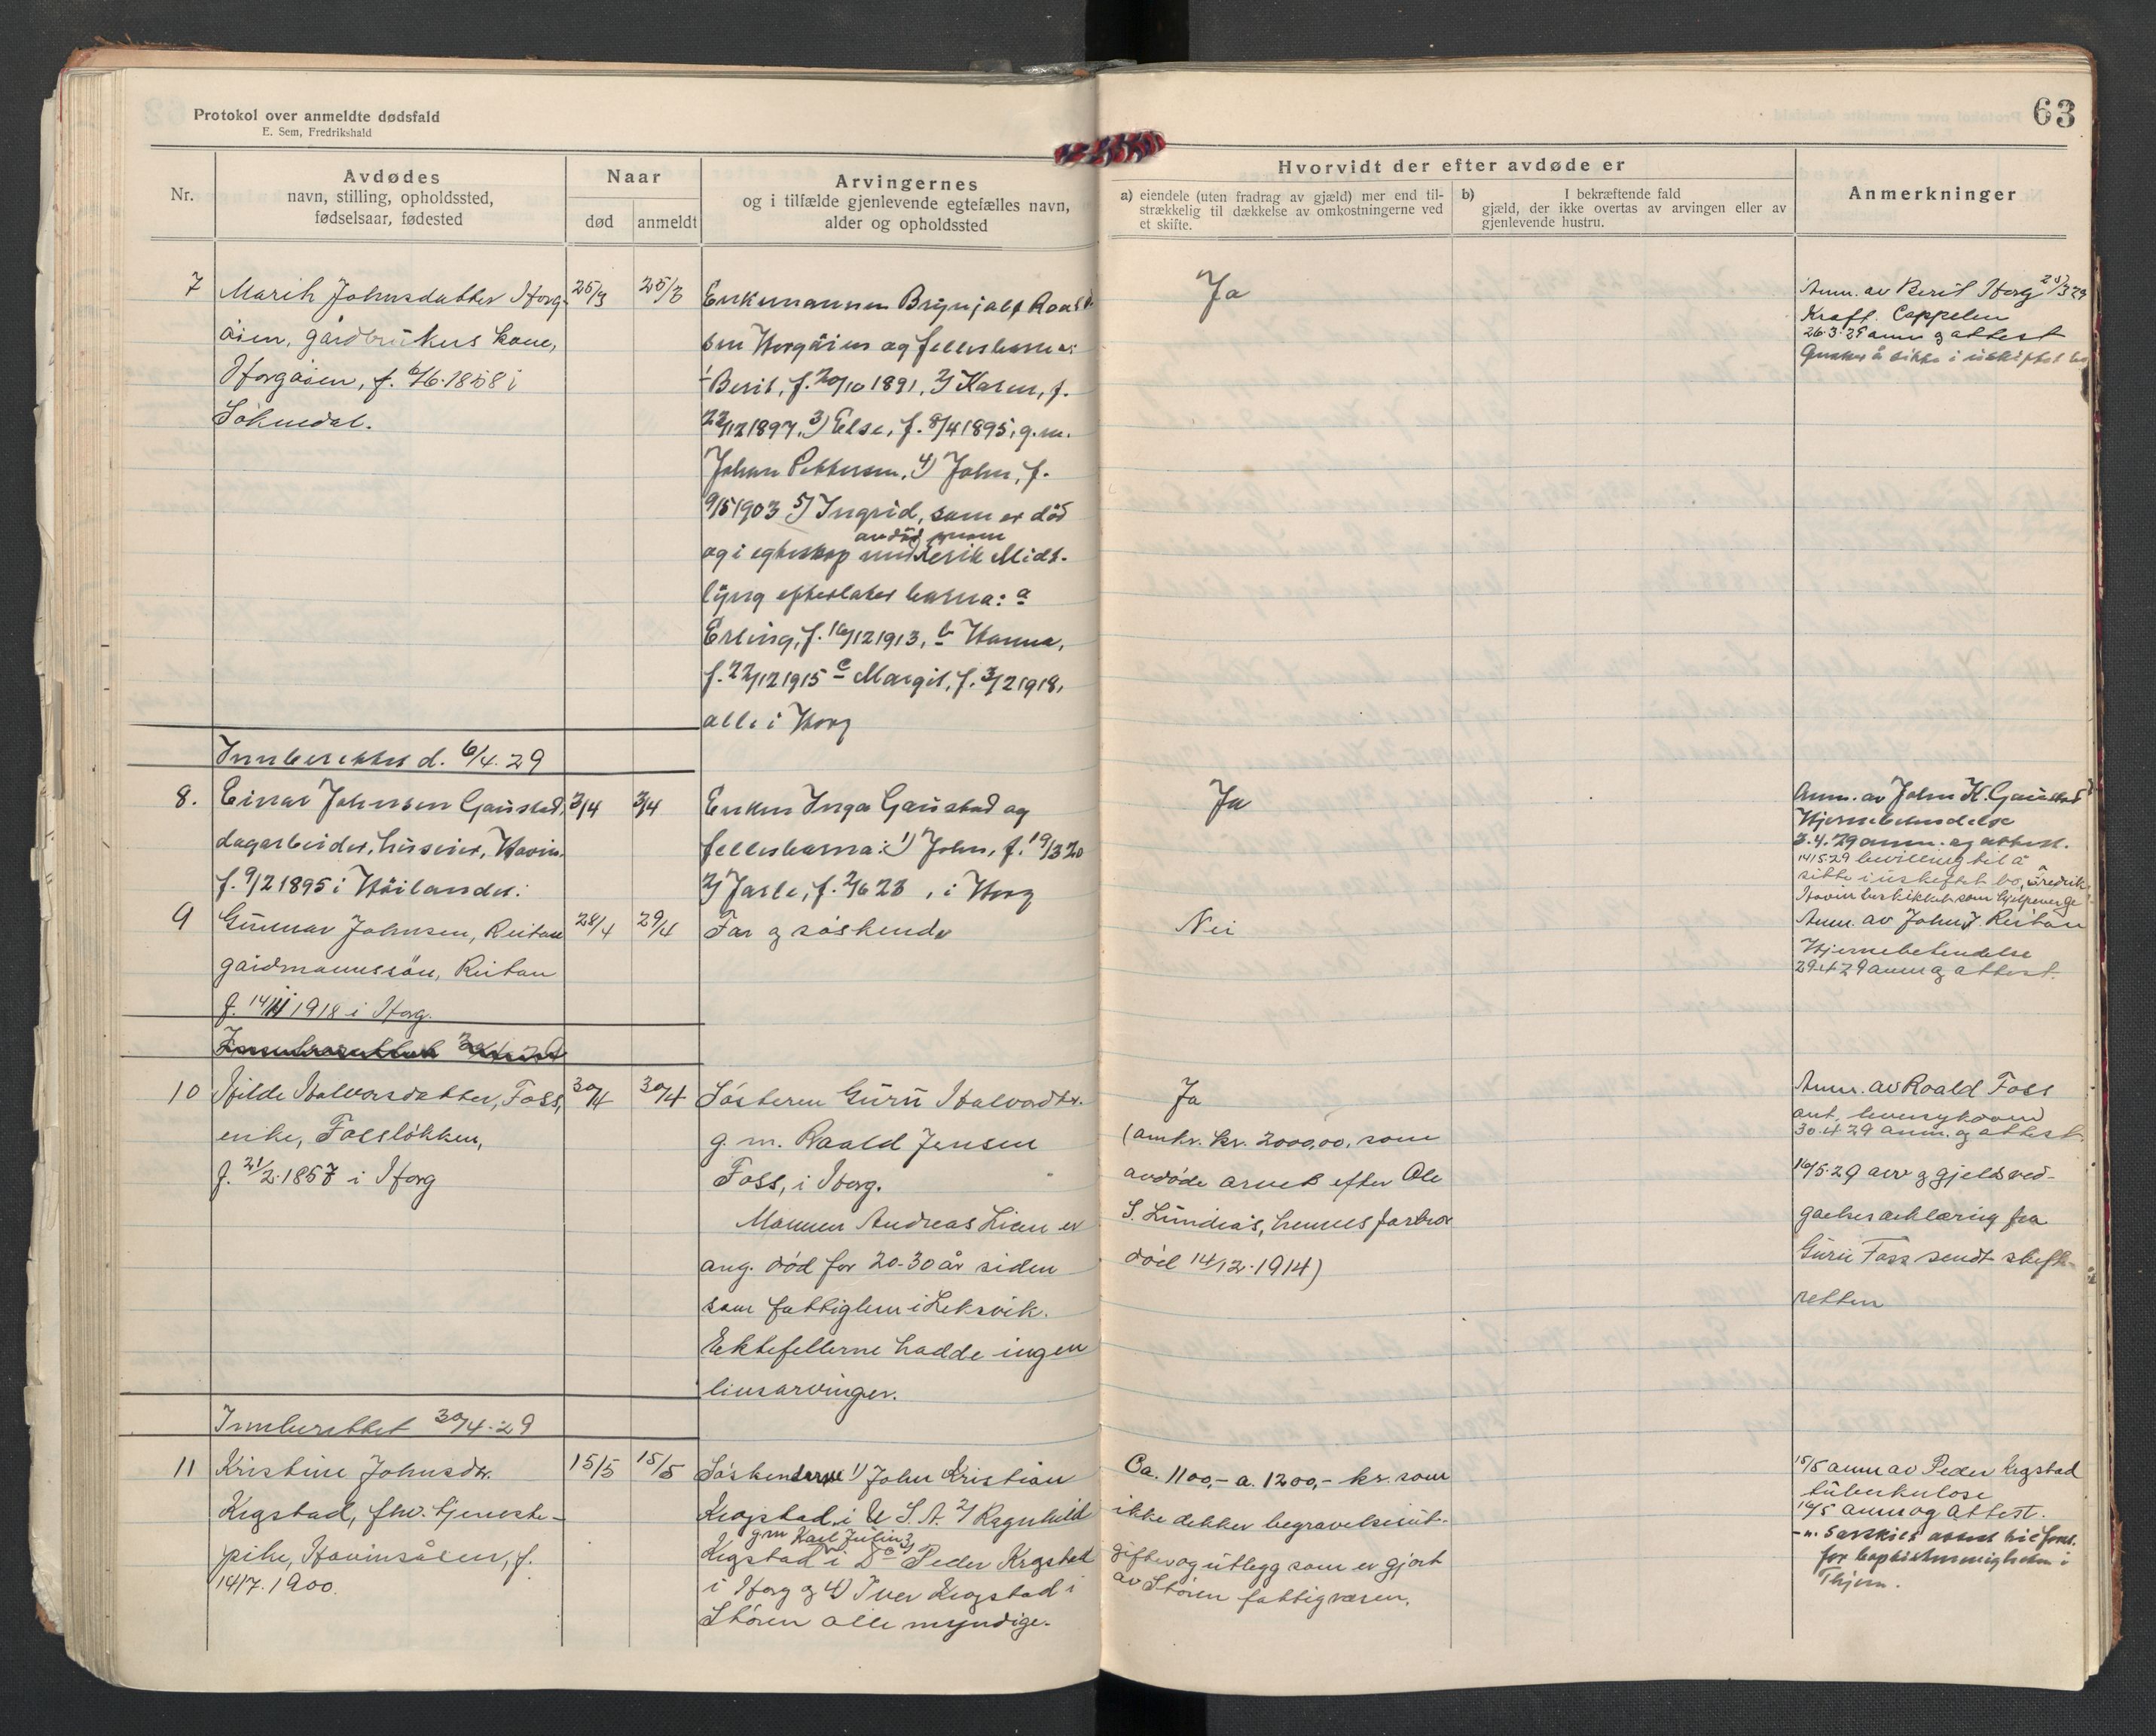 63
Protokol over anmeldte dødsfald
E. Sem, Fredrikshald
Nr.
Avdødes
navn, stilling, opholdssted,
fødselsaar, fødested
Naar
død
anmeldt
Arvingernes
og i tilfælde gjenlevende egtefælles navn,
alder og opholdssted
Hvorvidt der efter avdøde er
a) eiendele (uten fradrag av gjæld) mer end til-
strækkelig til dækkelse av omkostningerne ved
et skifte.
b) I bekræftende fald
gjæld, der ikke overtas av arvingen eller av
gjenlevende hustru.
Anmerkninger
7
Marit Johnsdatter Horg-
øien, gårdbrukers kone,
Horgøien, f. 6/6.1858 i
Soknedal.
25/3
25/3
Enkemannen Brynjolf Roald-
sen Horgøien og fellesbarna:
1/ Berit, f. 20/10 1891, 2/ Karen, f.
22/12 1897, 3) Else, f. 8/4 1895, g.m.
Johan Pettersen, 4) John, f.
9/5 1903 5/ Ingrid, som er død
og i egteskap med Erik Midt-
lyng efterlater barna: a
Erling, f. 16/12 1913, b Hanna,
f. 22/12 1915 c Margit, f. 3/2 1918,
alle i Horg
Ja
Anm. av Berit Horg 25/3 29
Kreft. Cappelen
26.3.29 anm og attest
Innberettet d. 6/4.29
8.
Einar Johnsen Gaustad,
dagarbeider, huseier, Hovin.
f. 9/2 1895 i Høilandet.
3/4
3/4
Enken Inga Gaustad og
fellesbarna: 1) John, f. 19/3 20
2/ Jarle, f. 2/6 23, i Horg
Ja
Anm. av John K. Gaustad
Hjernebetendelse
3.4.29 anm. og attest.
14/5 29 bevilling til å
sitte i uskiftet bo, Fredrik
Hovin beskikket som hjelpeverge
9
Gunnar Johnsen, Reitan
gårdmannssøn, Reitan
f. 14/11 1918 i Horg.
28/4
29/4
Far og søskende
Nei
Anm. av John J. Reitan
Hjernebetendelse
29.4.29 anm og attest.
10
Hilde Halvorsdatter, Foss,
enke, Fossløkken,
f. 21/2.1857 i Horg
30/4
30/4
Søsteren Guru Halvordtr.
g. m. Roald Jensen
Foss, i Horg.
Mannen Andreas Lien er
ang. død for 20-30 år siden
som fattiglem i Leksvik.
Ektefellerne hadde ingen
livsarvinger.
Ja
(omkr. kr. 2000,00, som
avdøde arvet efter Ole
S. Lundås, hennes farbror
død 14/12.1914)
Anm. av Roald Foss
30.4 29 anm. og attest.
16/5.29 arv og gjeldsved-
gaelseserklæring fra
Guru Foss sendt skifte-
retten
Innberettet 30/4.29
11
Kristine Johnsdtr.
Krogstad, fhv. tjeneste-
pike, Hovinsåsen, f.
14/7.1900.
15/5
15/5
Søskenderne 1) John Kristian
Krogstad, i U.S.A. 2/ Ragnhild
g.m Karl Julin
Krogstad i Do 3) Peder Krogstad
i Horg og 4) Iver Krogstad i
Støren alle myndige.
Ca. 1100,- a. 1200,- kr. som
ikke dekker begravelsesut-
gifter og utlegg som er gjort
av Støren fattigvesen.
15/5 anm av Peder Krogstad
tuberkulose
16/5 anm og attest.